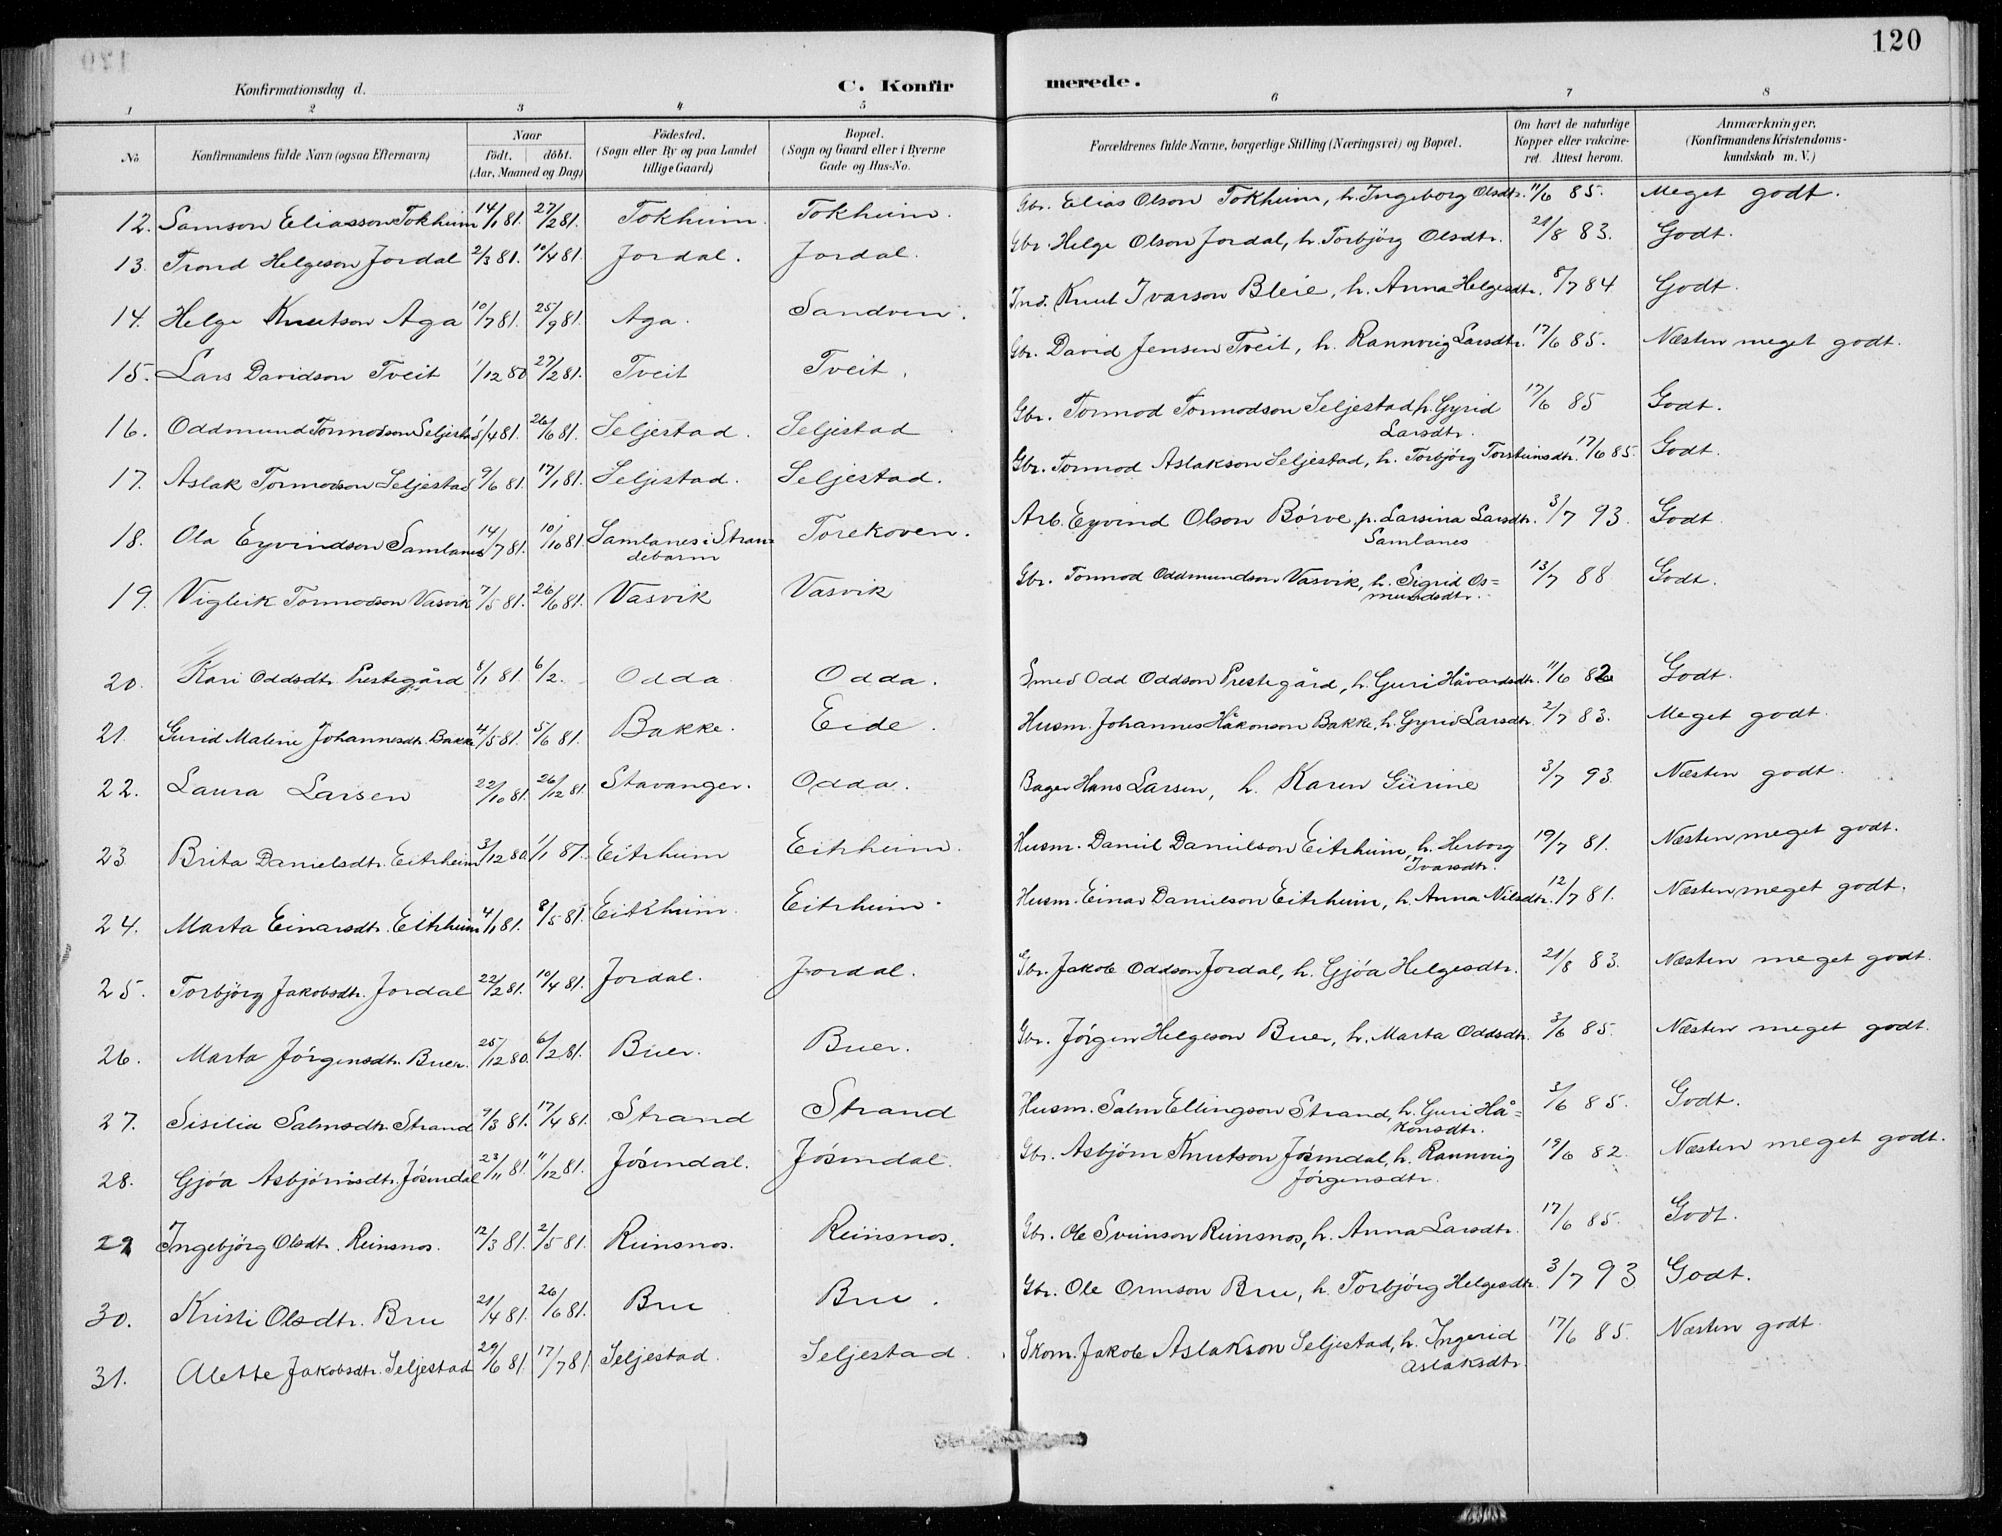 120
Konfirmationsdag d.
C. Konfirmerede.
1 2 3 4 5 6 7 8
No. Konfirmandens fulde Navn (ogsaa Efternavn) Naar født. døbt. (Aar, Maaned og Dag) Fødested. (Sogn eller By og paa Landet tillige Gaard) Bopæl. (Sogn og Gaard eller i Byerne Gade og Hus-No. Forældrenes fulde Navne, borgerlige Stilling (Næringsvei) og Bopæl. Om havt de naturlige Kopper eller vakcineret. Attest herom. Anmærkninger. (Konfirmandens Kristendomskundskab m. V.)
12. Samson Eliasson Tokheim 14/1 81. 27/2 81. Tokheim. Tokheim. Gbr. Elias Olson Tokheim, h. Ingeborg Olsdtr. 11/6 85. Meget godt.
13. Trond Helgeson Jordal 2/3 81. 10/4 81. Jordal. Jordal. Gbr. Helge Olson Jordal, h. Torbjörg Olsdtr. 21/8 83. Godt.
14. Helge Knutson Aga 10/7 81. 25/9 81. Aga. Sandven. Ind. Knut Ivarson Bleie, h. Anna Helgesdtr. 8/7 84 Godt.
15. Lars Davidson Tveit 1/12 80 27/2 81. Tveit Tveit. Gbr. David Jensen Tveit, h. Rannveig Larsdtr. 17/6 85. Næsten meget godt.
16. Oddmund Tormodson Seljestad 1/4 81. 26/6 81. Seljestad. Seljestad Gbr. Tormod Tormodson Seljestad, h. Gyrid Larsdtr. 17/6 85 Godt.
17. Aslak Tormodson Seljestad 9/6 81. 17/7 81. Seljestad. Seljestad. Gbr. Tormod Aslakson Seljestad, h. Torbjörg Torsteinsdtr. 17/6 85. Godt.
18. Ola Eyvindson Samlanes 14/7 81. 10/10 81. Samlanes i Strandebarm Torekoven. Arb. Eyvind Olson Börve, p. Larsina Larsdtr. Samlanes 3/7 93. Godt
19. Vigleik Tormodson Vasvik 7/5 81. 26/6 81. Vasvik Vasvik Gbr. Tormod Oddmundson Vasvik, h. Sigrid Osmundsdtr. 13/7 88 Godt.
20. Kari Oddsdtr. Prestegård 8/1 81. 6/2. Odda Odda. Smed Odd Oddson Prestegård, h. Guri Håvardsdtr. 11/6 82 Godt.
21. Gurid Maline Johannesdtr. Bakke 4/5 81. 5/6 81. Bakke. Eide. Husm. Johannes Håkonson Bakke, h. Gyrid Larsdtr. 2/7 83. Meget godt.
22. Laura Larsen 22/10 81. 26/12 81. Stavanger. Odda. Bager Hans Larsen, h. Karen Gürine 3/7 93 Næsten godt.
23 Brita Danielsdtr. Eitrheim 3/12 80. 1/1 81. Eitrheim Eitrheim. Husm. Daniel Danielson Eitrheim, h. Herborg Ivarsdtr. 19/7 81. Næsten meget godt.
24. Marta Einarsdtr. Eitrheim 4/1 81. 8/5 81. Eitrheim. Eitrheim. Husm. Einar Danielson Eitrheim, h. Anna Nilsdtr. 12/7 81. Næsten meget godt.
25. Torbjörg Jakobsdtr. Jordal 22/2 81. 10/4 81. Jordal. Jordal. Gbr. Jakob Oddson Jordal, h. Gjöa Helgesdtr. 21/8 83. Næsten meget godt.
26. Marta Jörgensdtr. Buer. 25/12 80. 6/2 81. Buer. Buer. Gbr. Jörgen Helgeson Buer, h. Marta Oddsdtr. 3/6 85. Næsten meget godt.
27. Sisilia Salmsdtr. Strand 7/3 81. 17/4 81. Strand Strand Husm. Salm Ellingson Strand, h. Guri Håkonsdtr. 3/6 85. Godt.
28. Gjöa Asbjörnsdtr. Jösendal 23/11 81. 11/12 81. Jösendal. Jösendal. Gbr. Asbjörn Knutson Jösendal, h. Rannveig Jörgensdtr. 19/6 82. Næsten meget godt.
29 Ingebjörg Olsdtr. Reinsnos. 12/3 81. 2/5 81. Reinsnos. Reinsnos. Gbr. Ole Sveinson Reinsnos, h. Anna Larsdtr. 17/6 85. Godt.
30. Kristi Olsdtr. Bru 21/4 81. 26/6 81. Bru Bru. Gbr. Ole Ormson Bru, h. Torbjörg Helgesdtr. 3/7 93 Godt.
31. Alette Jakobsdtr. Seljestad 29/6 81. 17/7 81 Seljestad. Seljestad. Skom. Jakob Aslakson Seljestad, h. Ingerid Aslaksdtr. 17/6 85. Næsten godt.